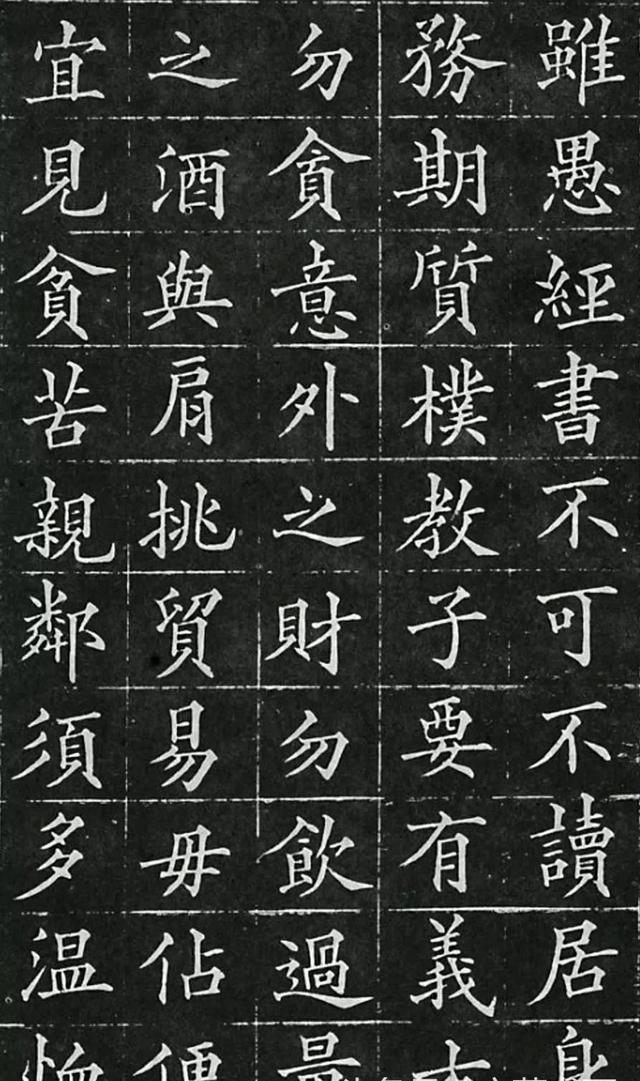 雖愚經書不可不讀居身
務期質樸教子要有義
勿貪意外之財勿飲過量
之酒與肩挑貿易毋佔便
宜見貧苦親鄰須多温恤